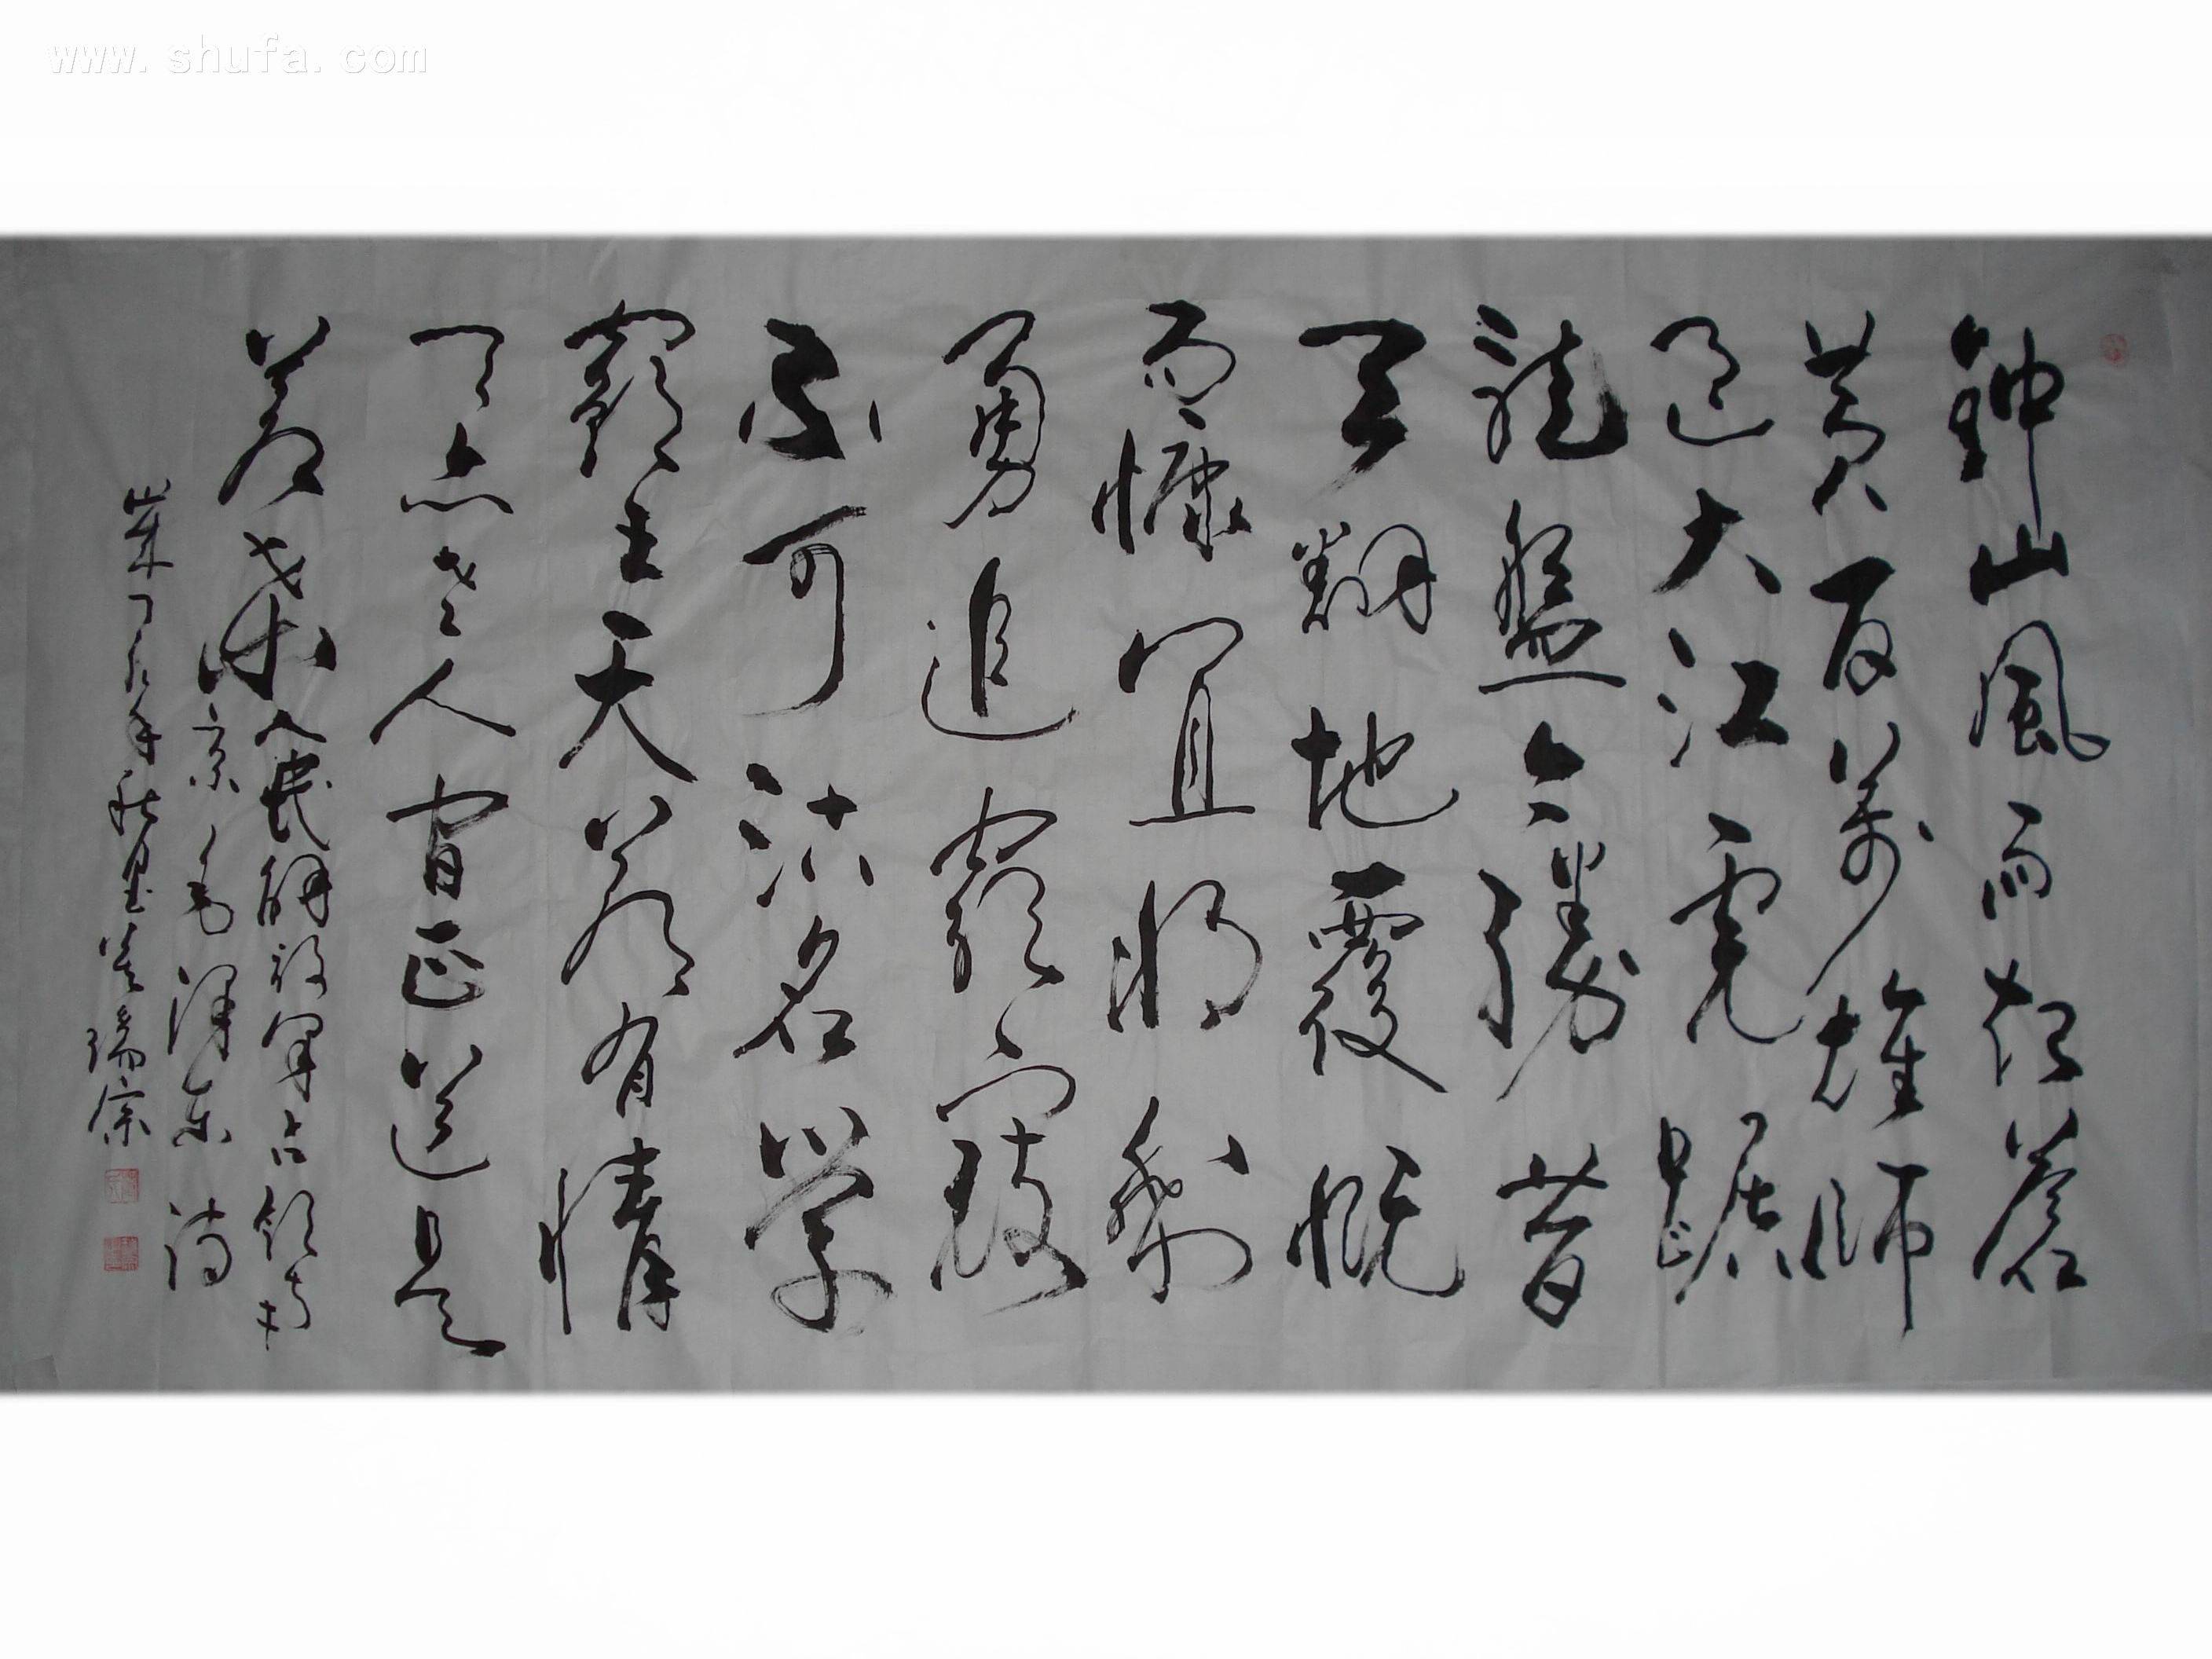 www.shufa.com
鍾山風雨起蒼
黄百萬雄師
過大江虎踞
龍盤今勝昔
天翻地覆慨
而慷宜將剩
勇追窮寇
不可沽名学
霸王天若有情
天亦老人间正道是
蒼桑人民解放军占领南
京毛泽东诗
岁丁亥年秋月姜瑞宗